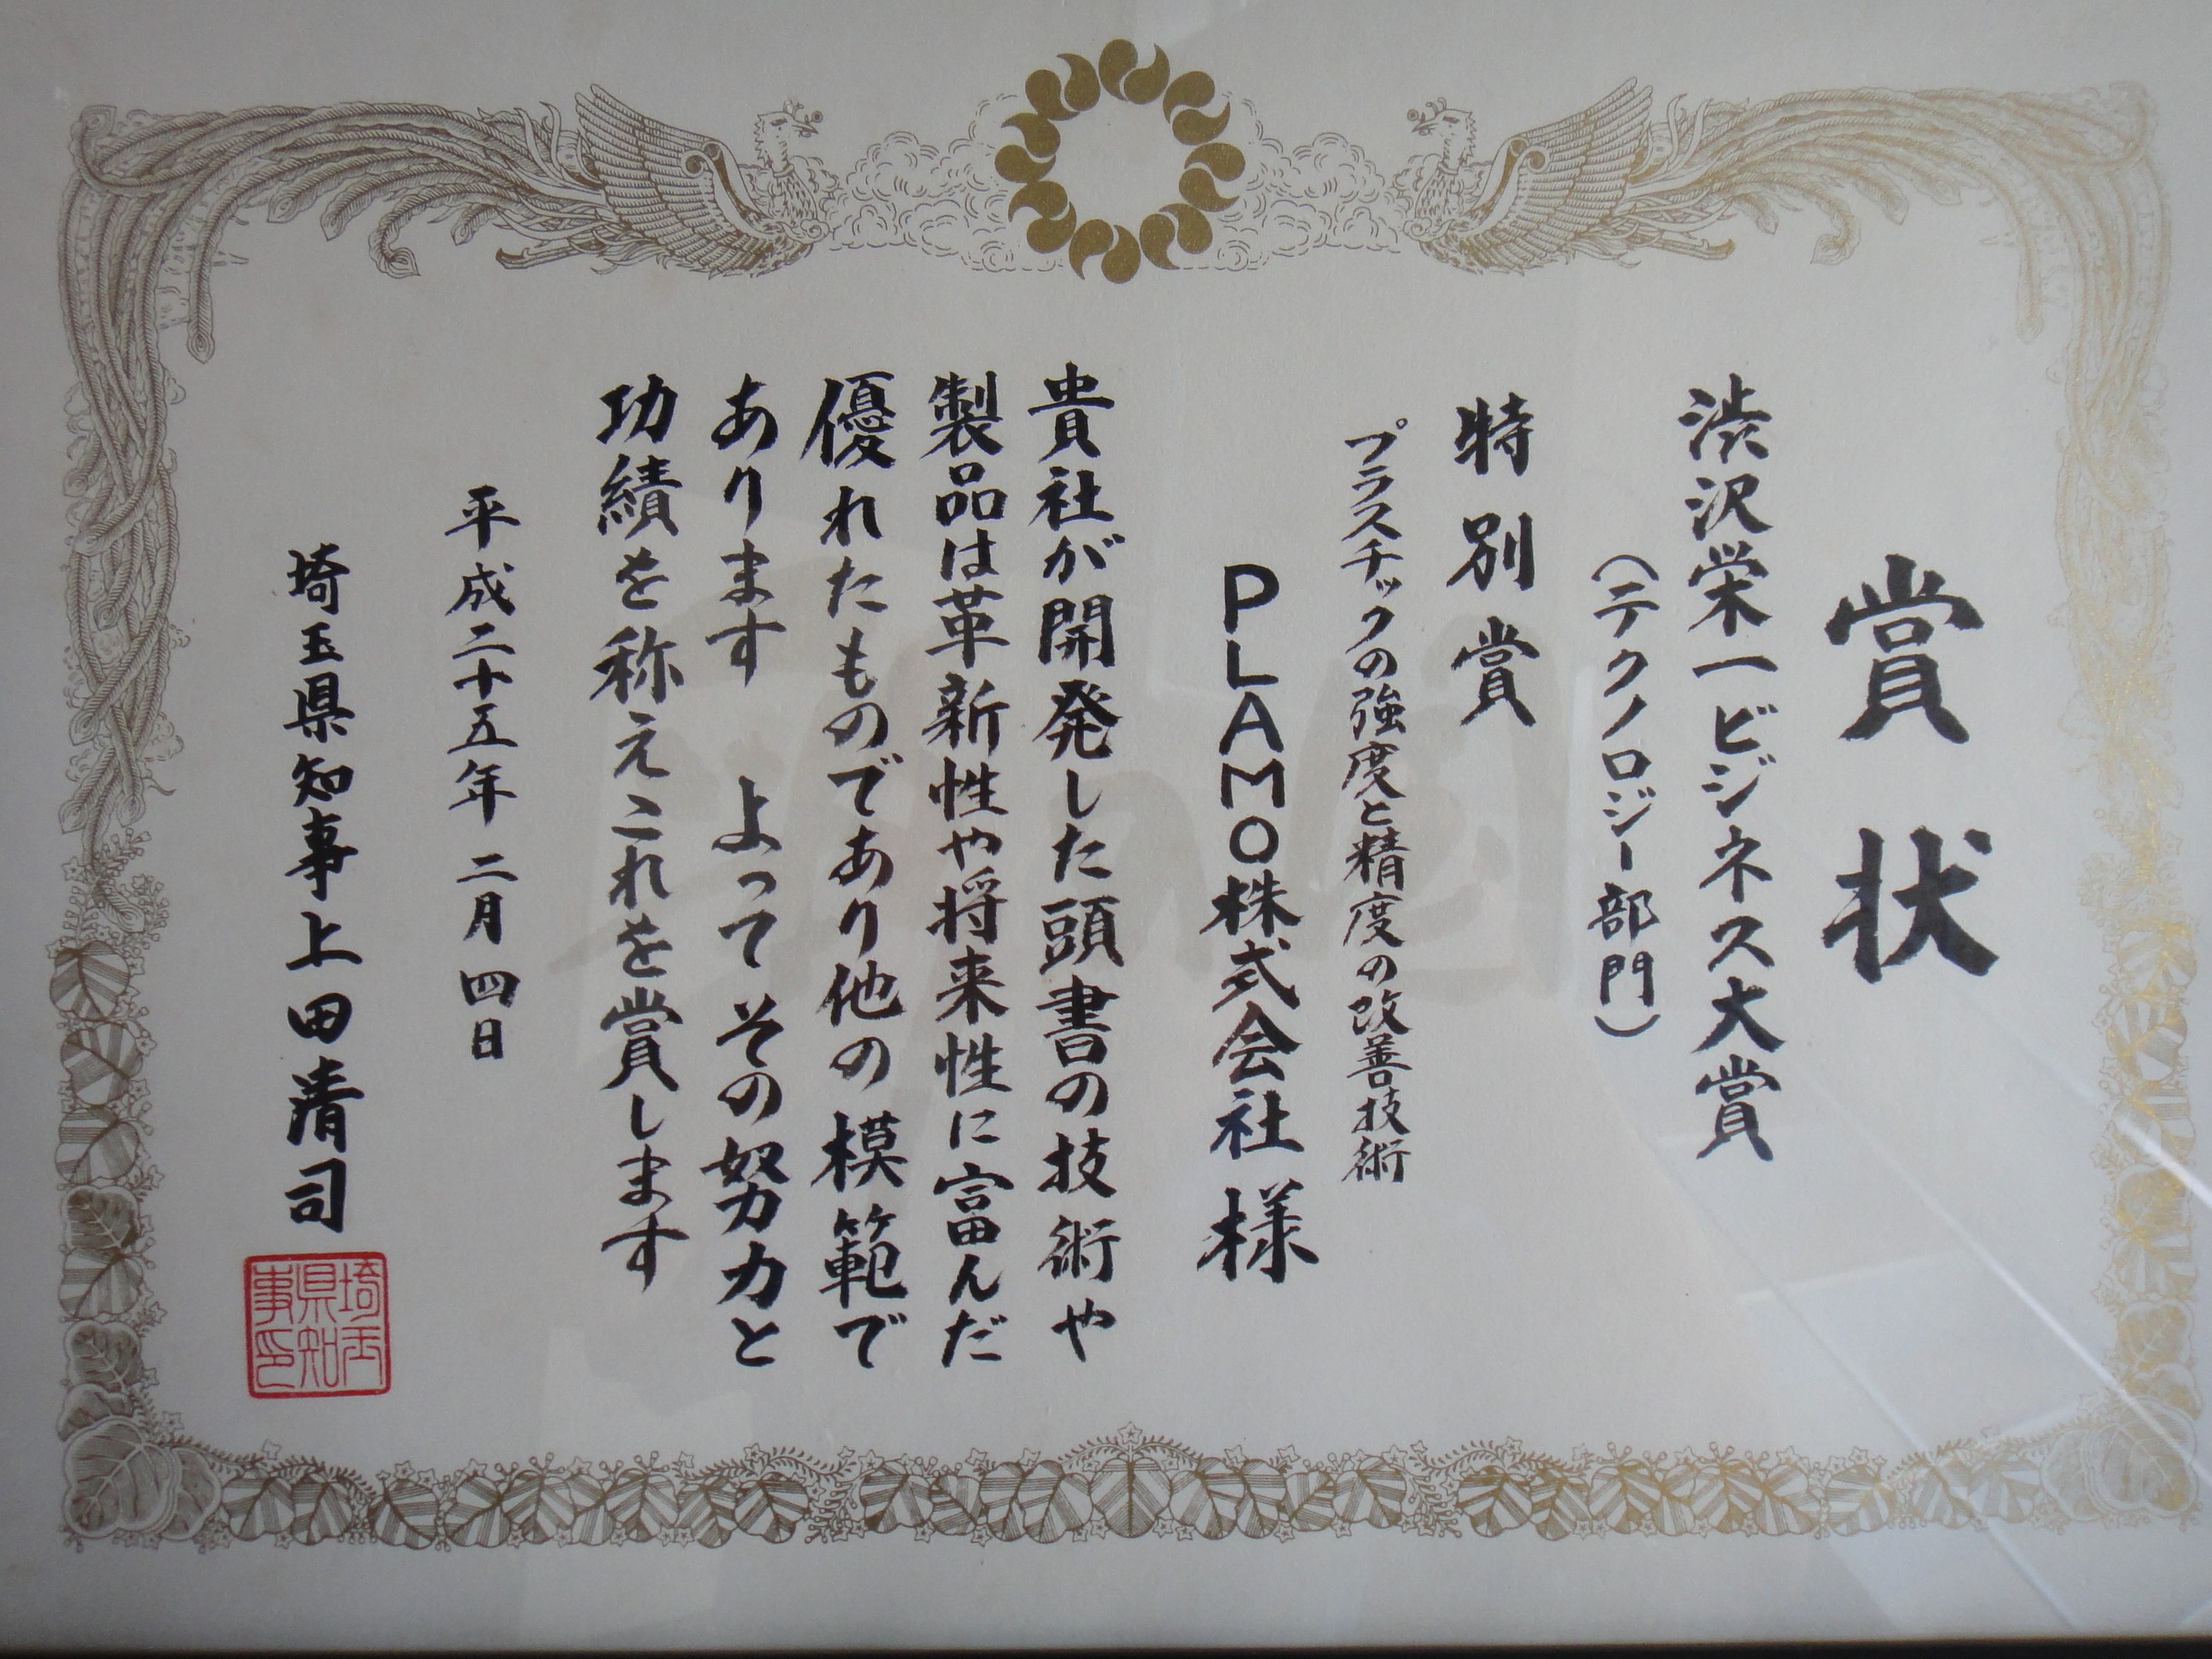 賞状
渋沢栄一ビジネス大賞
（テクノロジー部門）
特別賞
プラスチックの強度と精度の改善技術
PLAMO株式会社 様
貴社が開発した頭書の技術や
製品は革新性や将来性に富んだ
優れたものであり他の模範で
あります よってその努力と
功績を称えこれを賞します
平成二十五年 二月 四日
埼玉県知事 上田清司
埼玉
県知
事印